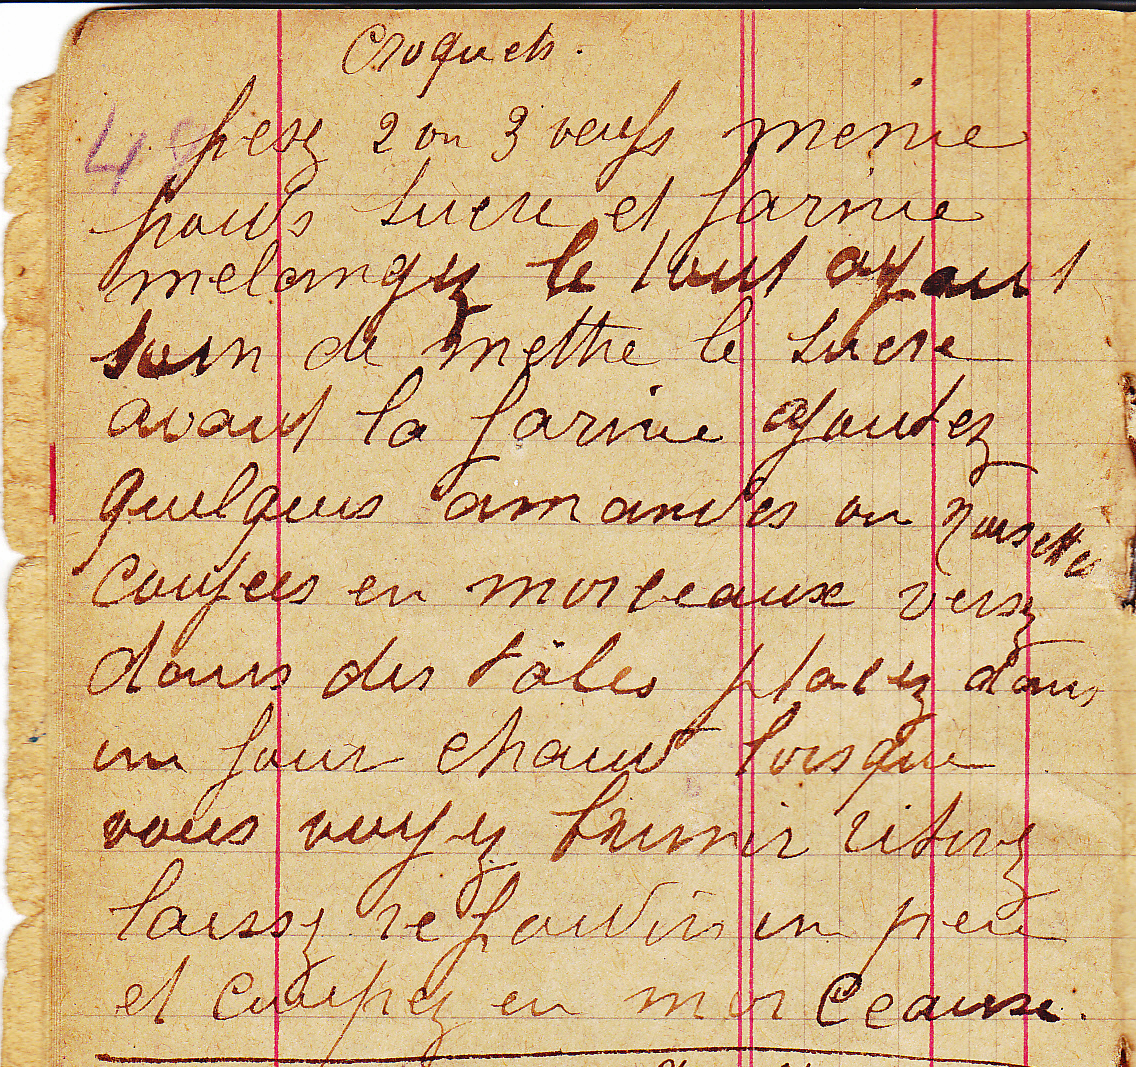 Croquets.
48 pesez 2 ou 3 oeufs même
poids sucre et farine
mélangez le tout ayant
soin de mettre le sucre
avant la farine ajoutez
quelques amandes ou noisettes
coupées en morceaux versez
dans des tôles placez dans
un four chaud lorsque
vous voyez brunir retirez
laissez refroidir un peu
et coupez en morceaux.